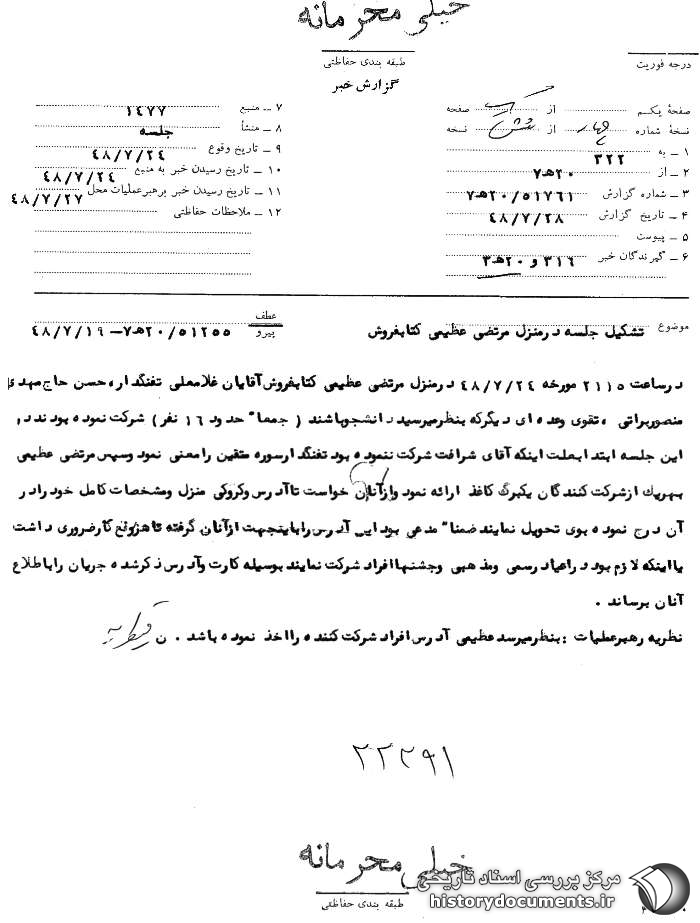 خیلی محرمانه
طبقه بندی حفاظتی
درجه فوریت
گزارش خبر
صفحهٔ یکم از یک صفحه
نسخهٔ شماره چهار از شش نسخه
۱ ــ به ۳۲۲
۲ ــ از ۲۰ه‍ـ۷
۳ ــ شماره گزارش ۲۰/۵۱۷۶۱ه‍ـ۷
۴ ــ تاریخ گزارش ۴۸/۷/۲۸
۵ ــ پیوست
۶ ــ گیرندگان خبر ۳۱۶ و ۲۰ه‍ـ۳
۷ ــ منبع ۱۴۷۷
۸ ــ منشأ جلسه
۹ ــ تاریخ وقوع ۴۸/۷/۲۴
۱۰ ــ تاریخ رسیدن خبر به منبع ۴۸/۷/۲۴
۱۱ ــ تاریخ رسیدن خبر برهبر عملیات محل ۴۸/۷/۲۷
۱۲ ــ ملاحظات حفاظتی
موضوع تشکیل جلسه درمنزل مرتضی عظیمی کتابفروش
عطف
پیرو ۲۰/۵۱۲۵۵ه‍ـ۷ــ ۴۸/۷/۱۹
درساعت ۲۱۱۵ مورخه ۴۸/۷/۲۴ درمنزل مرتضی عظیمی کتابفروش آقایان غلامعلی تفنگدار، حسن حاج مهدی
منصوربراتی ، تقوی وعده ای دیگرکه بنظرمیرسید دانشجوباشند ( جمعاً حدود ۱۶ نفر) شرکت نموده بودند در
این جلسه ابتدا بعلت اینکه آقای شرافت شرکت ننموده بود تفنگدارسوره متقین رامعنی نمود وسپس مرتضی عظیمی
بهریک ازشرکت کنندگان یکبرگ کاغذ ارائه نمود وازآنان خواست تاآدرس وکروکی منزل ومشخصات کامل خودرادر
آن درج نموده بوی تحویل نمایند ضمناً مدعی بود این آدرس رابااینجهت ازآنان گرفته تاهروقع کارضروری داشت
یااینکه لازم بود دراعیاد رسمی ومذهبی وجشنهاافراد شرکت نمایند بوسیله کارت وآدرس ذکرشده جریان راباطلاع
آنان برساند .
نظریه رهبرعملیات : بنظرمیرسد عظیمی آدرس افراد شرکت کننده رااخذ نموده باشد . ن
۲۲۲۹۱
خیلی محرمانه
طبقه بندی حفاظتی
مرکز بررسی اسناد تاریخی
historydocuments.ir